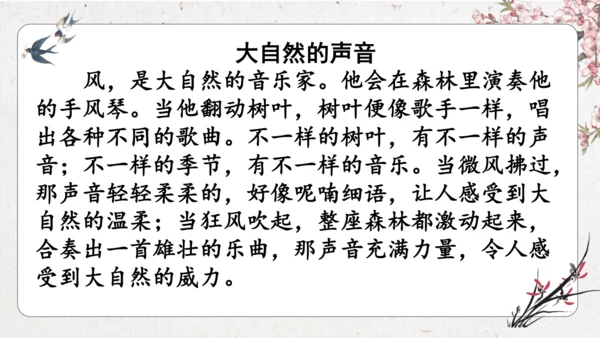 大自然的声音
风，是大自然的音乐家。他会在森林里演奏他
的手风琴。当他翻动树叶，树叶便像歌手一样，唱
出各种不同的歌曲。不一样的树叶，有不一样的声
音；不一样的季节，有不一样的音乐。当微风拂过，
那声音轻轻柔柔的，好像呢喃细语，让人感受到大
自然的温柔；当狂风吹起，整座森林都激动起来，
合奏出一首雄壮的乐曲，那声音充满力量，令人感
受到大自然的威力。